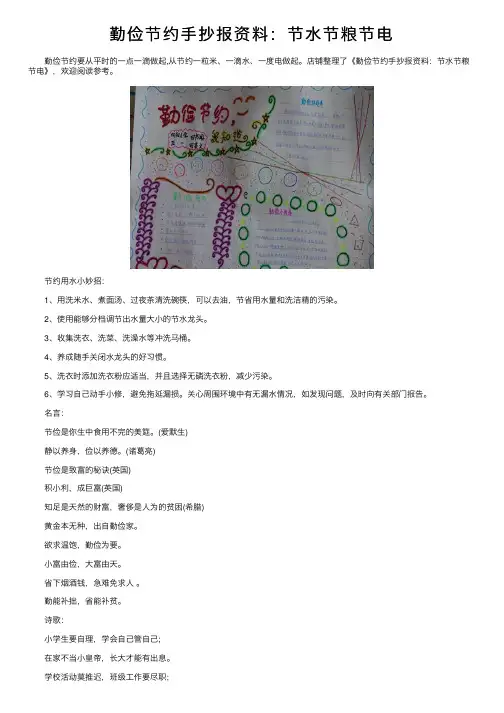 勤俭节约手抄报资料：节水节粮节电
勤俭节约要从平时的一点一滴做起,从节约一粒米、一滴水、一度电做起。店铺整理了《勤俭节约手抄报资料：节水节粮
节电》，欢迎阅读参考。
勤俭节约,
我知道
节约用水小妙招：
1、用洗米水、煮面汤、过夜茶清洗碗筷，可以去油，节省用水量和洗洁精的污染。
2、使用能够分档调节出水量大小的节水龙头。
3、收集洗衣、洗菜、洗澡水等冲洗马桶。
4、养成随手关闭水龙头的好习惯。
5、洗衣时添加洗衣粉应适当，并且选择无磷洗衣粉，减少污染。
6、学习自己动手小修，避免拖延漏损。关心周围环境中有无漏水情况，如发现问题，及时向有关部门报告。
名言：
节俭是你生中食用不完的美筵。(爱默生)
静以养身，俭以养德。(诸葛亮)
节俭是致富的秘诀(英国)
积小利，成巨富(英国)
知足是天然的财富，奢侈是人为的贫困(希腊)
黄金本无种，出自勤俭家。
欲求温饱，勤俭为要。
小富由俭，大富由天。
省下烟酒钱，急难免求人 。
勤能补拙，省能补贫。
诗歌：
小学生要自理，学会自己管自己;
在家不当小皇帝，长大才能有出息。
学校活动莫推迟，班级工作要尽职;